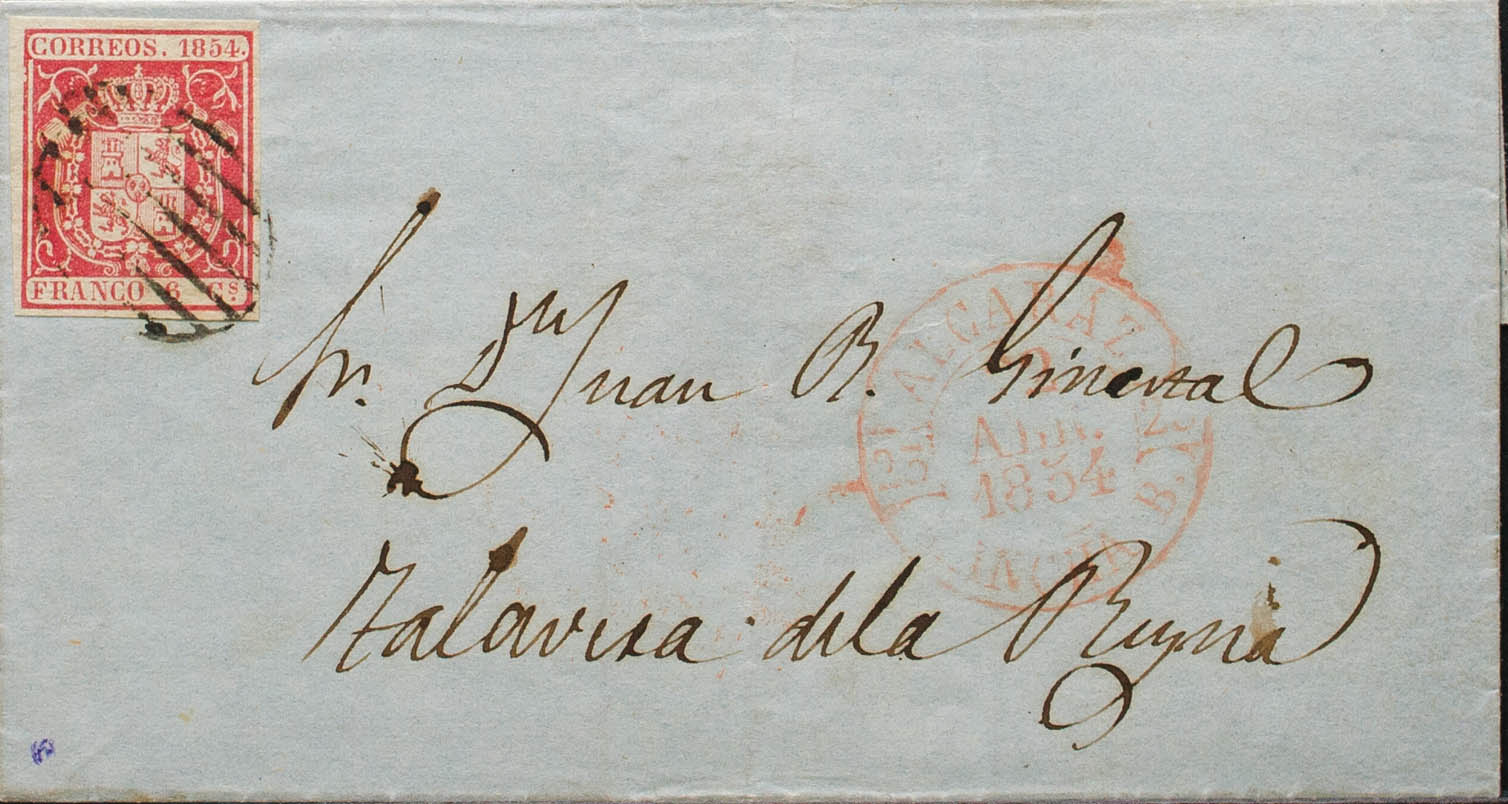 CORREOS. 1854.
FRANCO 6 Cs.
Sr. Dn Juan B. Ginestal
Talavera dela Reyna
ALCARÁZ
ABR.
1854